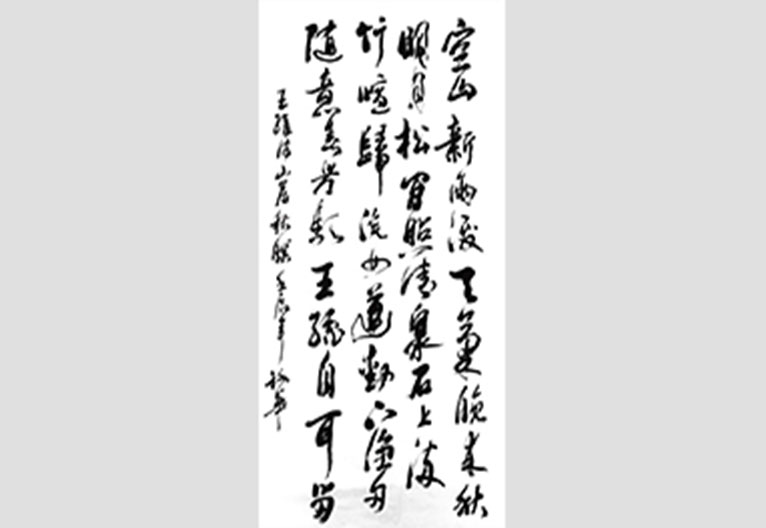 空山新雨後天氣晚來秋
明月松間照清泉石上流
竹喧歸浣女蓮動下漁舟
隨意春芳歇王孫自可留
王維詩山居秋暝壬辰年